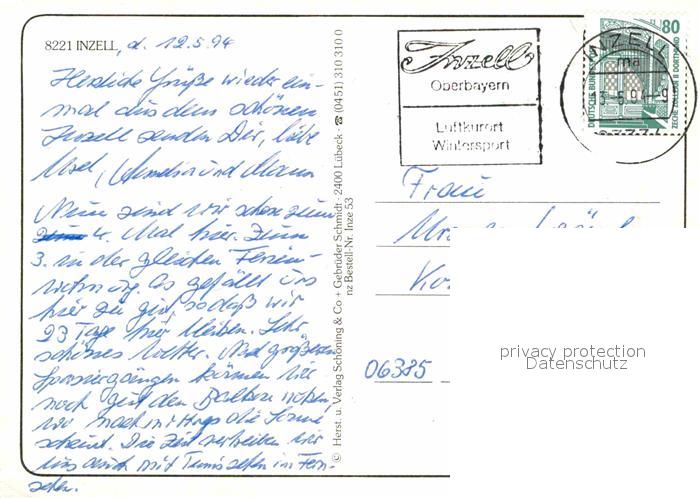 8221 INZELL, d. 12.5.94
Herzliche Grüße wieder ein-
mal aus dem schönen
Inzell senden Dir, liebe
und Mann
Nun sind wir schon zum
4. Mal hier. Zum
3. in der gleichen Ferien-
wohnung. Es gefällt uns
hier so gut, sodaß wir
23 Tage hier bleiben. Sehr
schönes Wetter. Nach größeren
Spaziergängen können wir
noch gut den Balkon nutzen,
wo nachmittags die Sonne
scheint. Die Zeit vertreiben wir
uns auch mit Tennis sehen im Fern-
sehen.
© Herst. u. Verlag Schöning & Co + Gebrüder Schmidt · 2400 Lübeck · ☎ (0451) 310 310 0
nz Bestell-Nr. Inze 53
Inzell
Oberbayern
Luftkurort
Wintersport
INZELL
80
DEUTSCHE BUNDESPOST
ZECHE ZOLLERN II DORTMUND
Frau
06385
privacy protection
Datenschutz